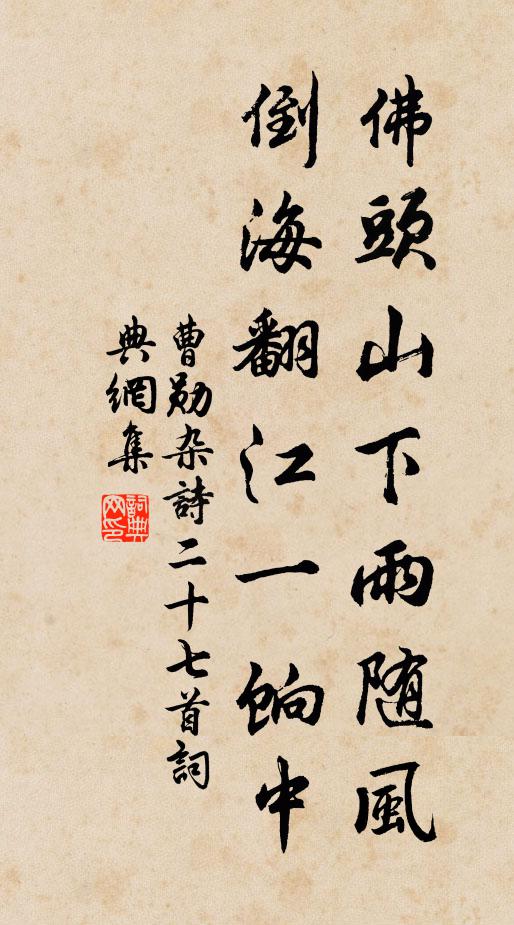 佛頭山下雨随風
倒海翻江一餉中
曹勛杂詩二十七首詞
典網集
詞典網印